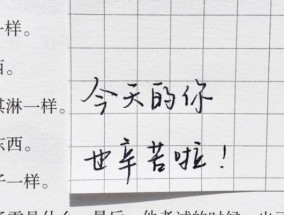 一样。
西。
淇淋一样。
东西。
一样。
今天的你
也辛苦啦！